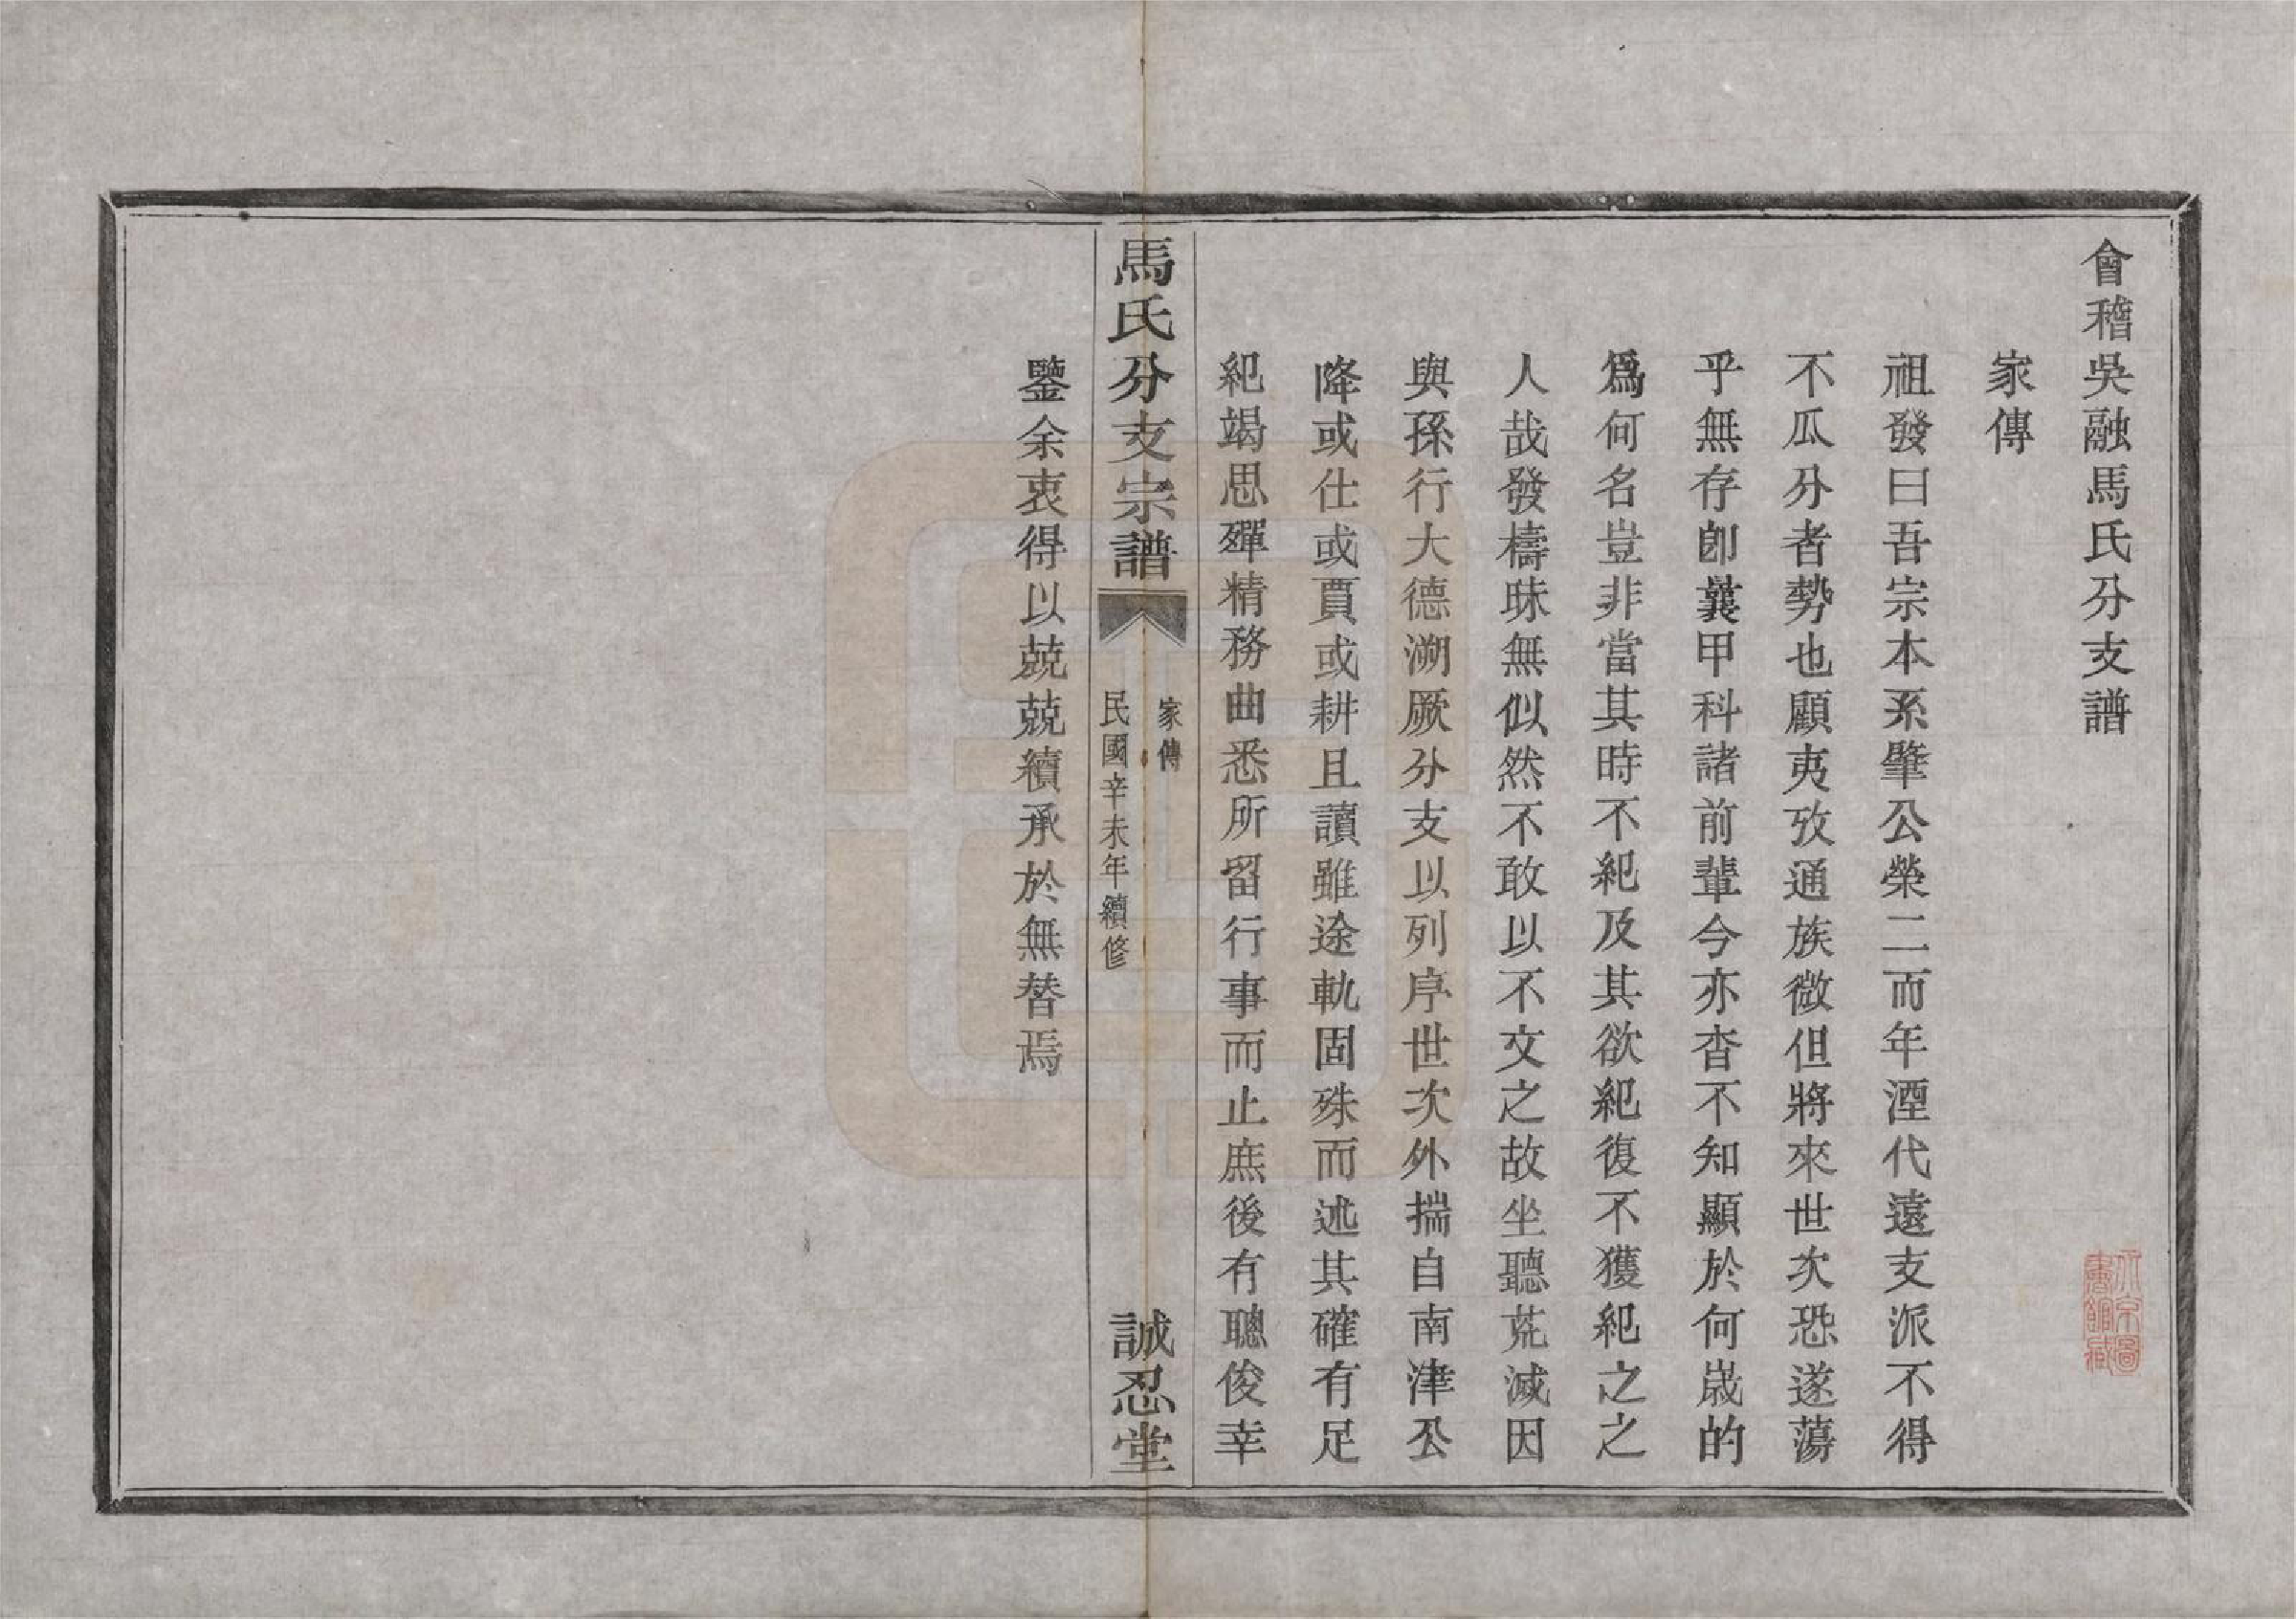 會稽吳融馬氏分支譜
家傳
祖發曰吾宗本系肇公榮二而年湮代遠支派不得
不瓜分者勢也顧夷攷通族微但將來世次恐遂蕩
乎無存卽曩甲科諸前輩今亦杳不知顯於何歲的
爲何名豈非當其時不紀及其欲紀復不獲紀之之
人哉發檮昧無似然不敢以不文之故坐聽荒滅因
與孫行大德溯厥分支以列序世次外揣自南津公
降或仕或賈或耕且讀雖途軌固殊而述其確有足
紀竭思殫精務曲悉所留行事而止庶後有聰俊幸
馬氏分支宗譜
家傳
民國辛未年續修
誠忍堂
鑒余衷得以兢兢續承於無替焉